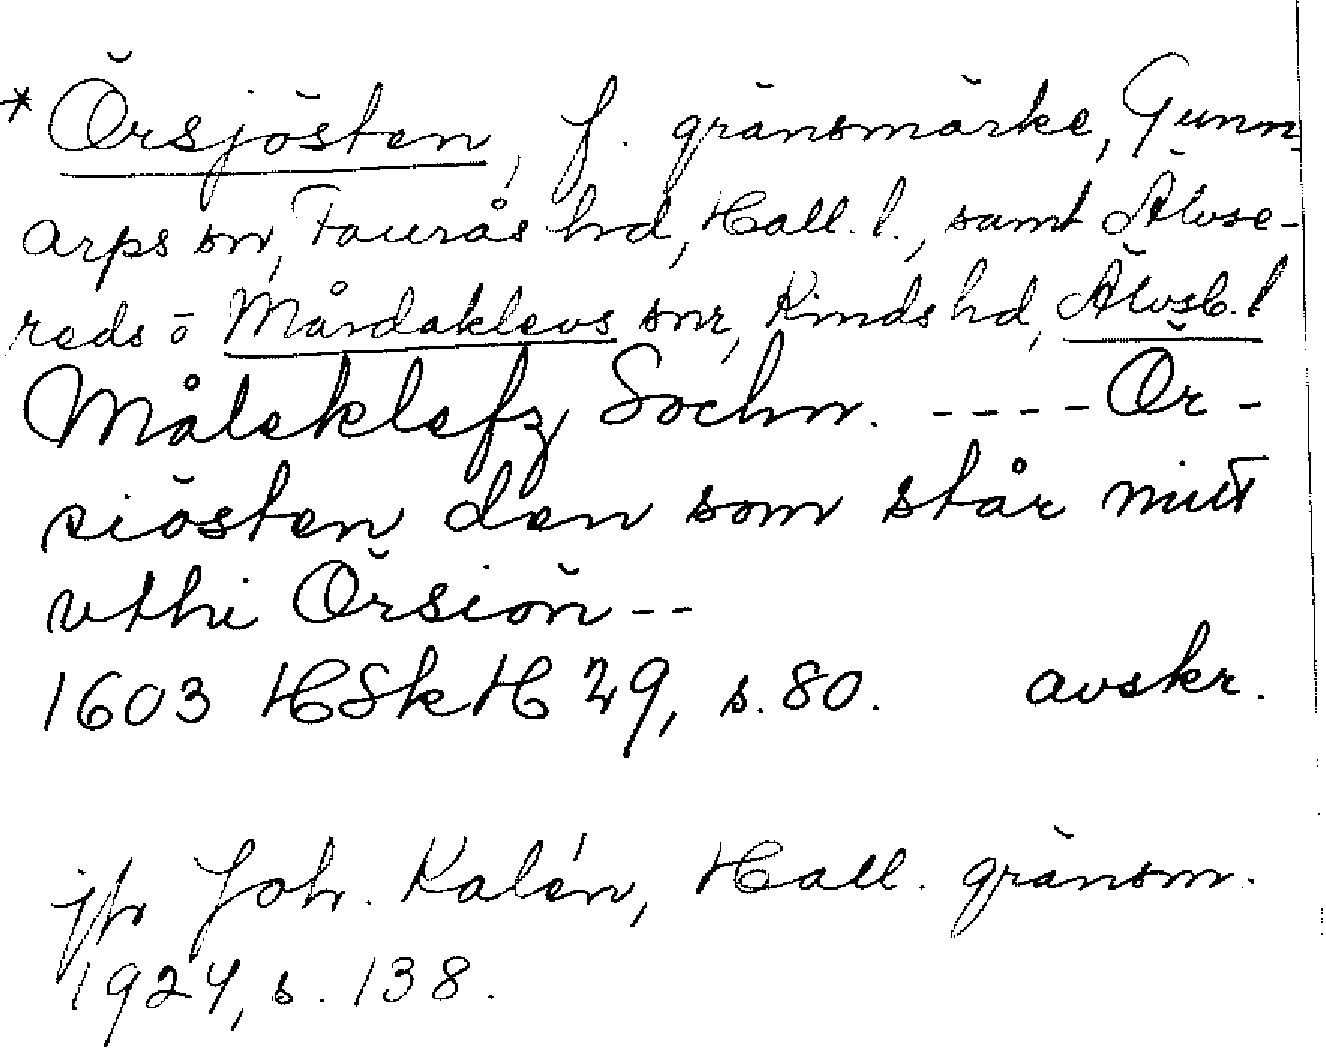 * Örsjösten, f. gränsmärke, Gunn
arps sn, Faurås hd, Hall. l., samt Älvse-
reds o Mårdaklevs snr, Kinds hd, Älvsb. l
Måleklefz Sochn. ---- Ör-
siösten den som står mitt
vthi Örsiön --
1603 HSkH 29, s. 80. avskr.
jfr Joh. Kalén, Hall. gränsm.
1924, s. 138.